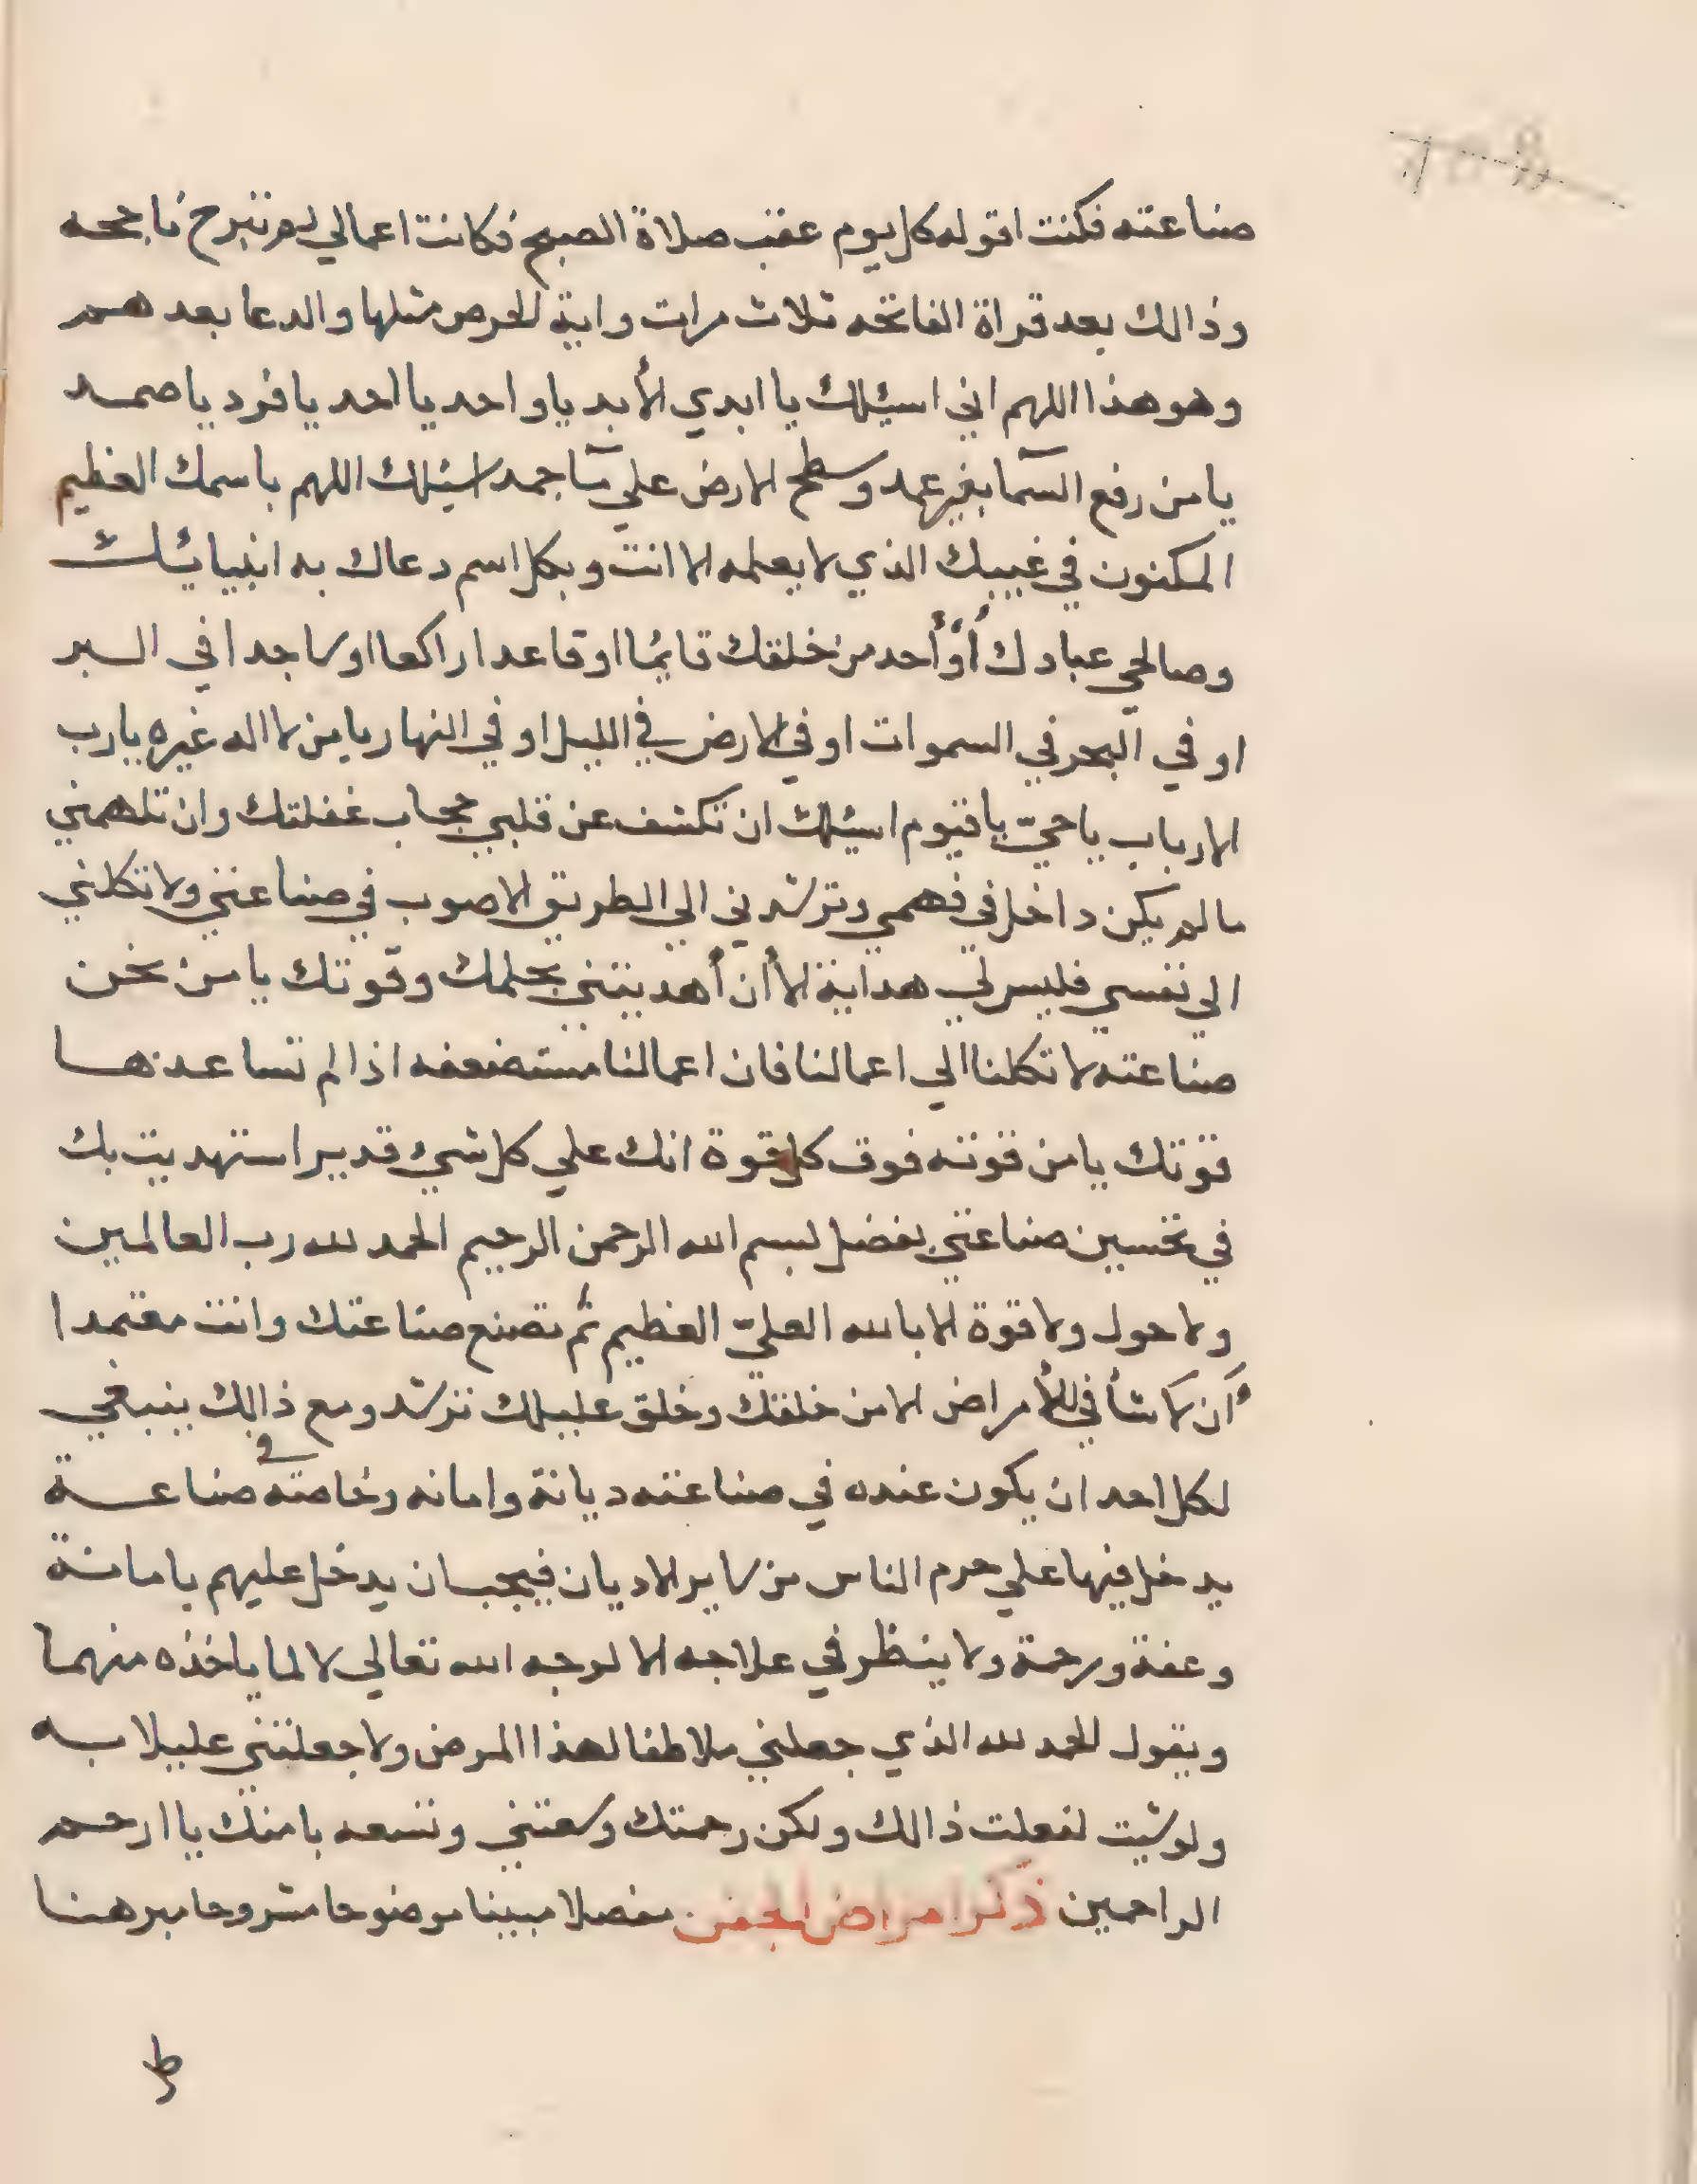 صناعته فكنت اقوله كل يوم عقب صلاة الصبح فكانت اعمالي لم تبرح ناجحه
وذالك بعد قراة الفاتحه ثلاث مرات واية الحرص مثلها والدعا بعد هم
وهو هذا اللهم اني اسيئلك يا ابدي الأبد يا واحد يا احد يا فرد يا صمد
يا من رفع السمآ بغير عمد وسطح الارض علي مآ جمد اسيئلك اللهم باسمك العظيم
المكنون في غيبك الذي لا يعلمه الا انت وبكل اسم دعاك به انبيائك
وصالحي عبادك أو أحد من خلقك قايمًا او قاعدا راكعا او ساجدا في البر
او في البحر في السموات او في الارض في الليل او في النهار يا من لا اله غيره يا رب
الارباب يا حيّ يا قيوم اسيئلك ان تكشف عن قلبي حجاب غفلتك وان تلهمني
ما لم يكن داخل في فهمي وترشدني الي الطريق الاصوب في صناعتي ولا تكلني
الي نفسي فليس لي هداية الا أن أهديتني بحلمك وقوتك يا من نحن
صناعته لا تكلنا الي اعمالنا فان اعمالنا مستضعفه اذا لم تساعدها
قوتك يا من قوته فوق كل قوة انك علي كل شيء قدير استهديت بك
في تحسين صناعتي بفضل بسم الله الرحمن الرحيم الحمد لله رب العالمين
ولا حول ولا قوة الا بالله العليّ العظيم ثم تصنع صناعتك وانت معتمدا
أن لا شافي للأمراض الا من خلقك وخلق عليلك ترشد ومع ذالك ينبغي
لكل احد ان يكون عنده في صناعته ديانة وامانه وخاصته في صناعة
يدخل فيها علي حرم الناس من ساير الاديان فيجب ان يدخل عليهم بامانة
وعفة ورحمة ولا ينظر في علاجه الا لوجه الله تعالي لا لما ياخذه منهما
ويقول الحمد لله الذي جعلني ملاطفا لهذا المرض ولا جعلتني عليلا به
ولو شيت لفعلت ذالك ولكن رحمتك وسعتني وتسعه بامنك يا ارحم
الراحمين ذكر امراض الجفن مفصلا مبينا موضوحا مشروحا مبرهنا